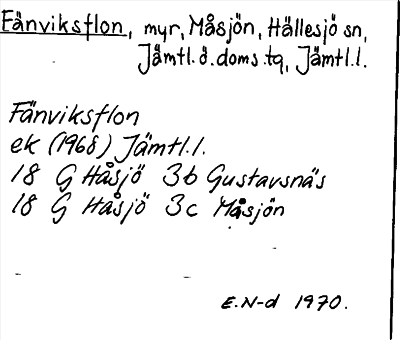 Fänviksflon, myr, Måsjön, Hällesjö sn,
Jämtl.ö.doms.tg, Jämtl.l.
Fänviksflon
ek (1968) Jämtl.l.
18 G Håsjö 3b Gustavsnäs
18 G Håsjö 3c Måsjön
E.N-d 1970.